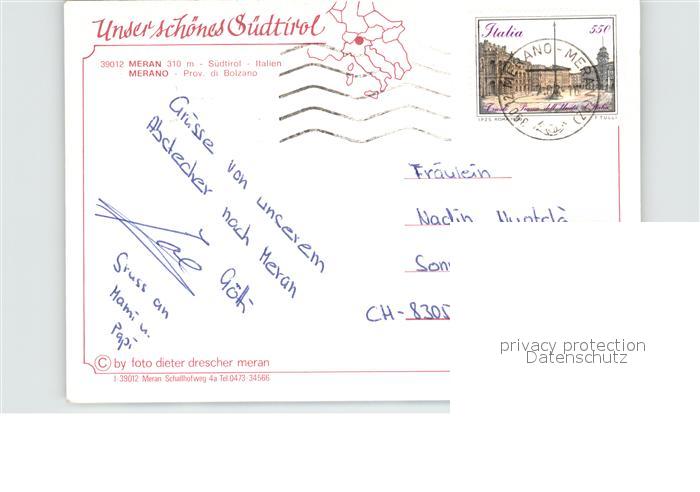 Unser schönes Südtirol
39012 MERAN 310 m - Südtirol - Italien
MERANO - Prov. di Bolzano
Italia 550
MERANO - MERAN
Trieste Piazza dell'Unità d'Italia
I.P.Z.S. ROMA F. TULLI
Grüsse von unserem
Abstecher nach Meran
Götti
Gruss an
Mami u.
Papi
Fräulein
Nadin
CH-8305
privacy protection
Datenschutz
© by foto dieter drescher meran
I-39012 Meran Schallhofweg 4a Tel.0473-34566